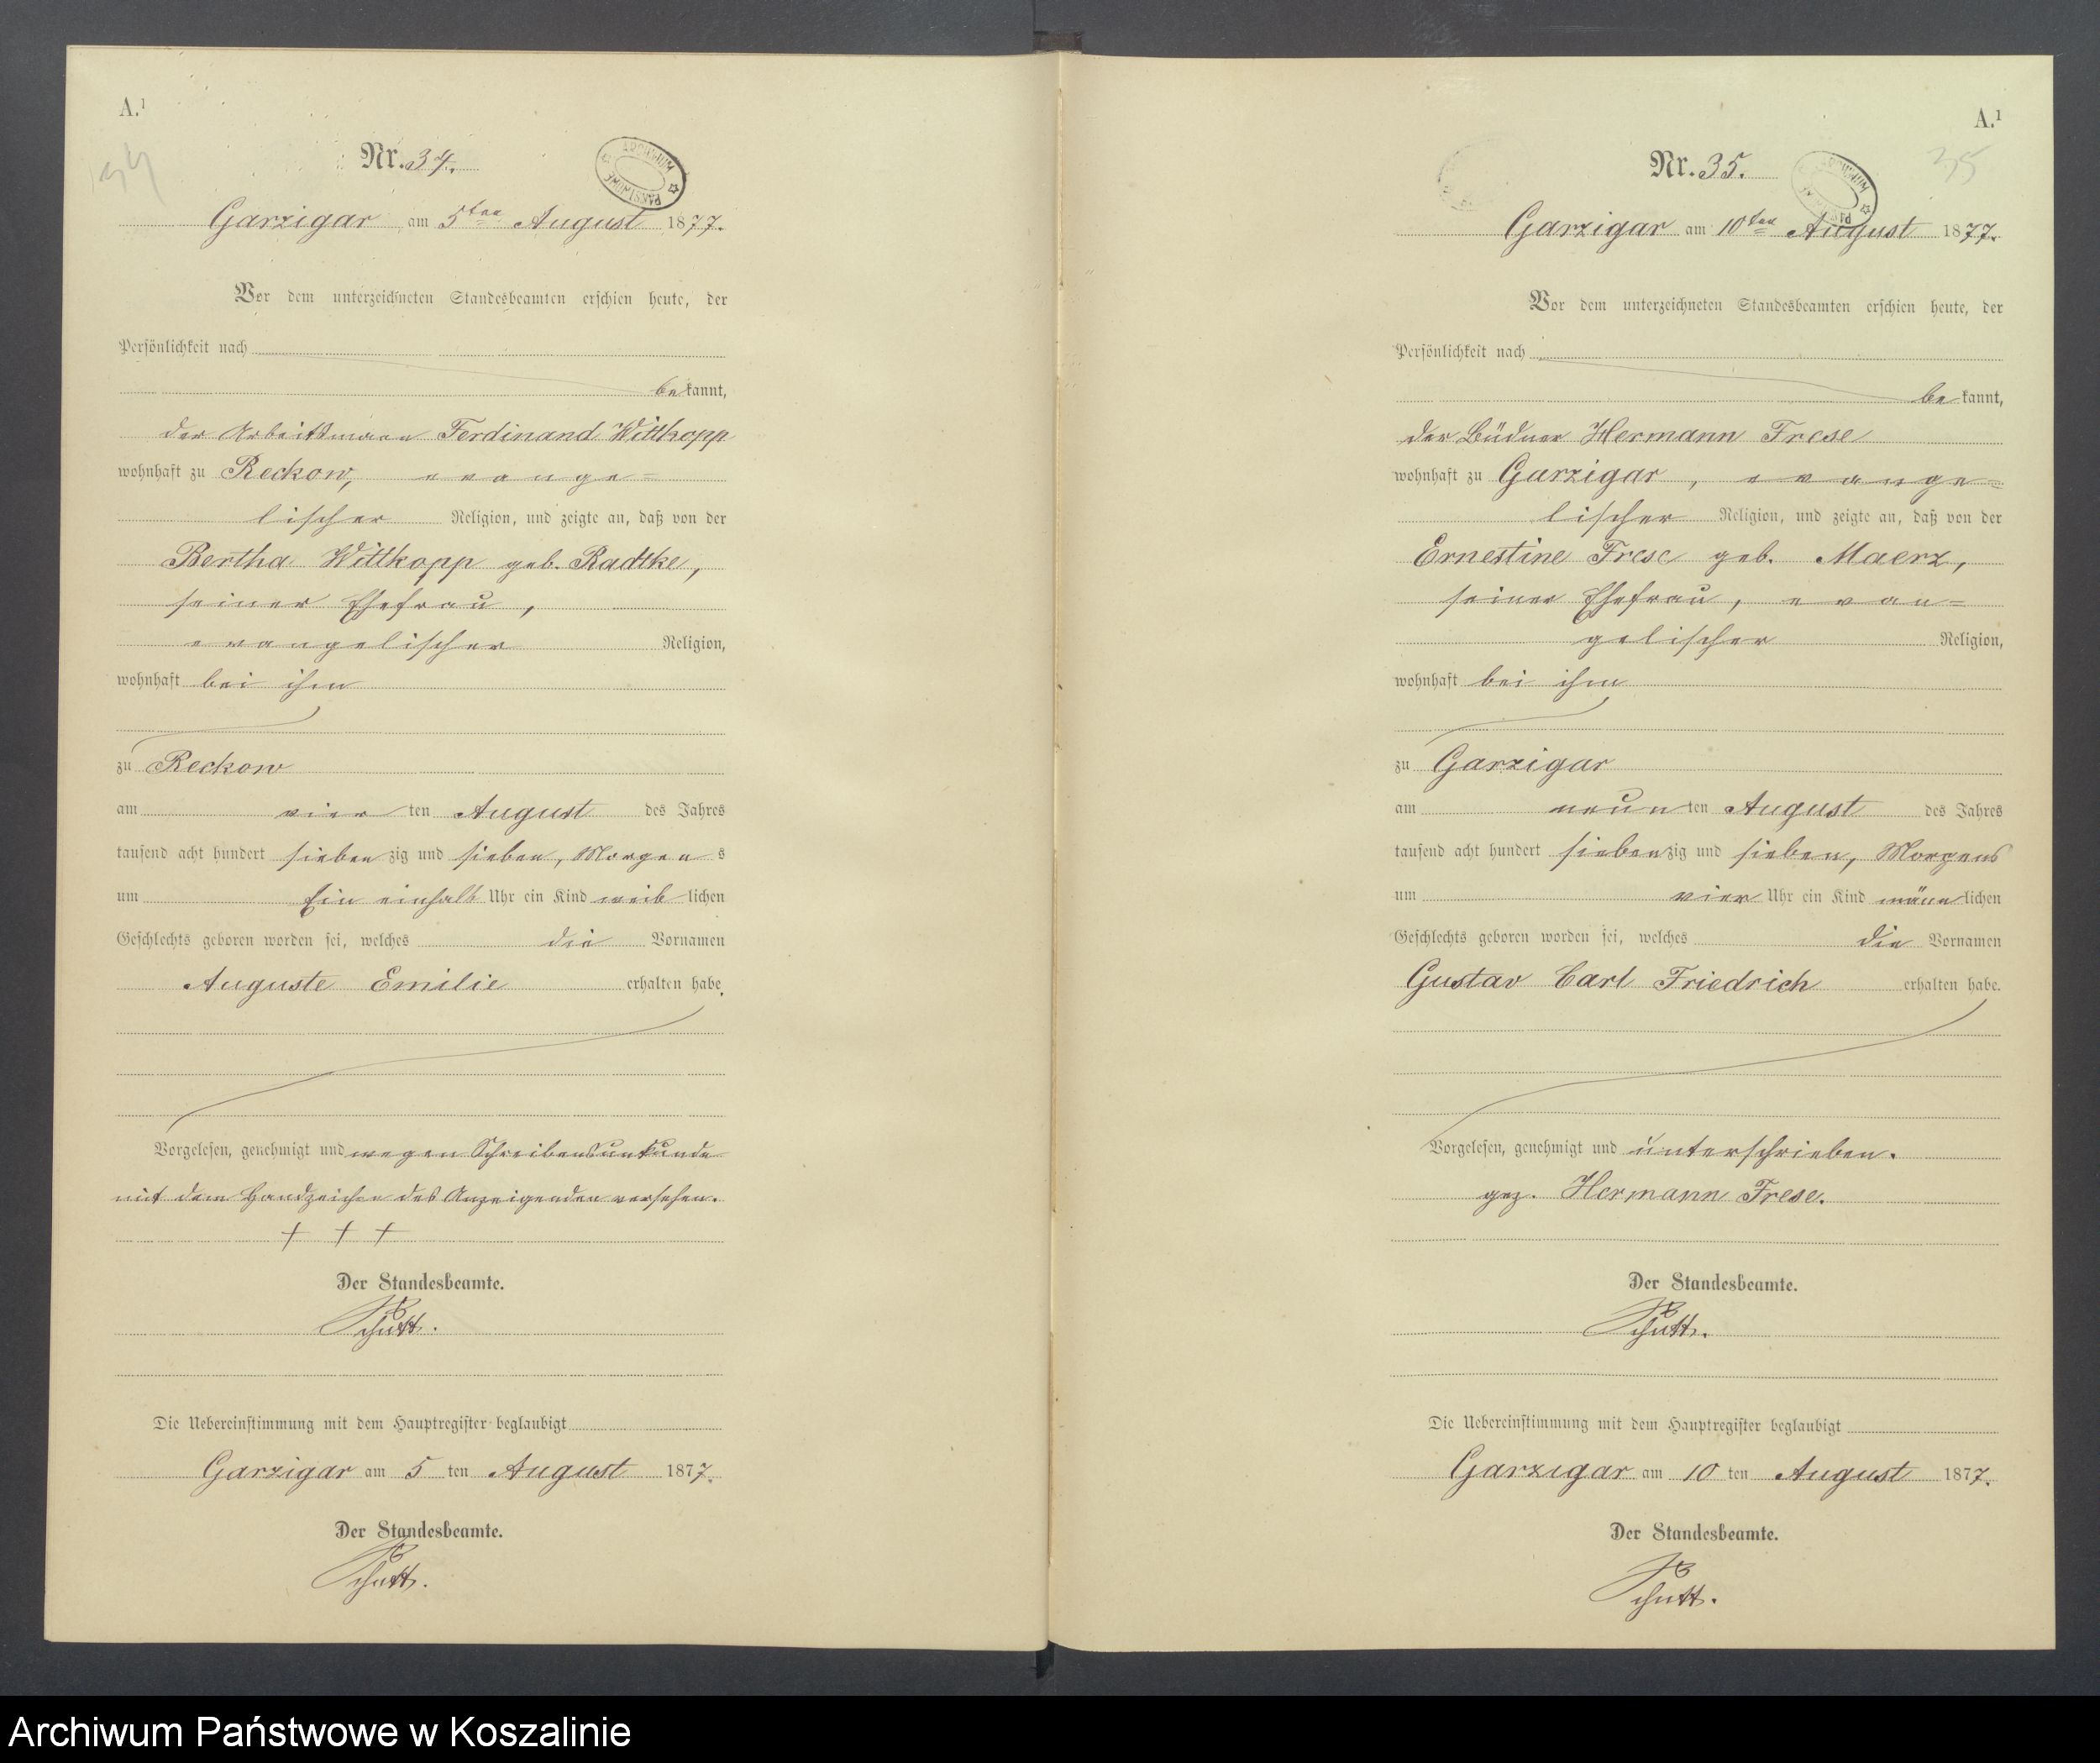 A.¹
Nr. 34.
34
ARCHIWUM PAŃSTWOWE
Garzigar am 5ten August 1877.
Vor dem unterzeichneten Standesbeamten erschien heute, der
Persönlichkeit nach
bekannt,
der Arbeitsmann Ferdinand Wittkopp
wohnhaft zu Reckow, evange=
lischer Religion, und zeigte an, daß von der
Bertha Wittkopp geb. Radtke,
seiner Ehefrau,
evangelischer Religion,
wohnhaft bei ihm
zu Reckow
am vier ten August des Jahres
tausend acht hundert siebenzig und sieben, Morgens
um Ein einhalb Uhr ein Kind weiblichen
Geschlechts geboren worden sei, welches die Vornamen
Auguste Emilie erhalten habe.
Vorgelesen, genehmigt und wegen Schreibensunkunde
mit dem Handzeichen des Anzeigenden versehen.
+ + +
Der Standesbeamte.
Schutt.
Die Uebereinstimmung mit dem Hauptregister beglaubigt
Garzigar am 5 ten August 1877.
Der Standesbeamte.
Schutt.
A.¹
Nr. 35.
35
Garzigar am 10ten August 1877.
Vor dem unterzeichneten Standesbeamten erschien heute, der
Persönlichkeit nach
bekannt,
der Büdner Hermann Frese
wohnhaft zu Garzigar, evange=
lischer Religion, und zeigte an, daß von der
Ernestine Frese geb. Maerz,
seiner Ehefrau, evan=
gelischer Religion,
wohnhaft bei ihm
zu Garzigar
am neun ten August des Jahres
tausend acht hundert siebenzig und sieben, Morgens
um vier Uhr ein Kind männlichen
Geschlechts geboren worden sei, welches die Vornamen
Gustav Carl Friedrich erhalten habe.
Vorgelesen, genehmigt und unterschrieben.
gez. Hermann Frese.
Der Standesbeamte.
Schutt.
Die Uebereinstimmung mit dem Hauptregister beglaubigt
Garzigar am 10 ten August 1877.
Der Standesbeamte.
Schutt.
Archiwum Państwowe w Koszalinie